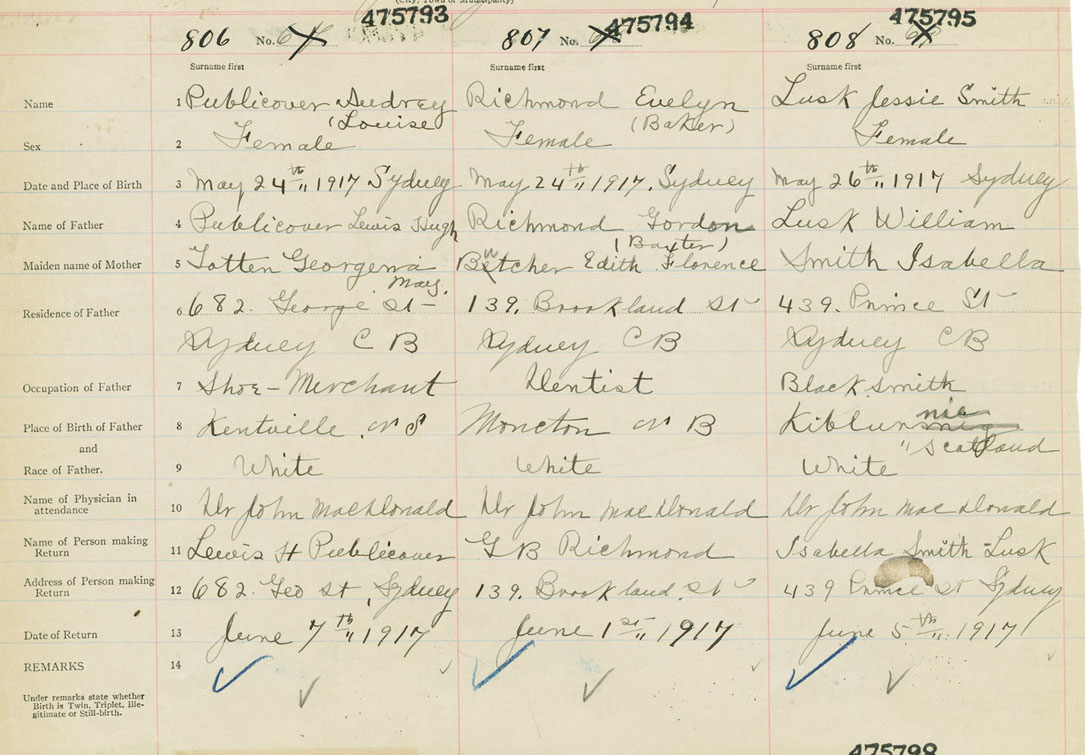 (City, Town or Municipality)
475793 475794 475795
806 No. 807 No. 808 No.
Surname first Surname first Surname first
Name 1 Publicover Audrey Richmond Evelyn Lusk Jessie Smith
(Louise (Baker)
Sex 2 Female Female Female
Date and Place of Birth 3 May 24th 1917 Sydney May 24th 1917. Sydney May 26th 1917 Sydney
Name of Father 4 Publicover Lewis Hugh Richmond Gordon Lusk William
(Baxter)
Maiden name of Mother 5 Totten Georgena Butcher Edith Florence Smith Isabella
May.
Residence of Father 6 682. George St 139. Brookland St 439. Prince St
Sydney C B Sydney C B Sydney C B
Occupation of Father 7 Shoe-Merchant Dentist Black smith
Place of Birth of Father 8 Kentville N S Moncton N B
and
" Scotland
Race of Father. 9 White White White
Name of Physician in
attendance 10 Dr John MacDonald Dr John MacDonald Dr John MacDonald
Name of Person making
Return 11 Lewis H Publicover G B Richmond Isabella Smith-Lusk
Address of Person making
Return 12 682. Geo St, Sydney 139. Brookland. St 439 Prince St Sydney
Date of Return 13 June 7th 1917 June 1st 1917 June 5th 1917
REMARKS 14
Under remarks state whether
Birth is Twin, Triplet, Ille-
gitimate or Still-birth.
475798